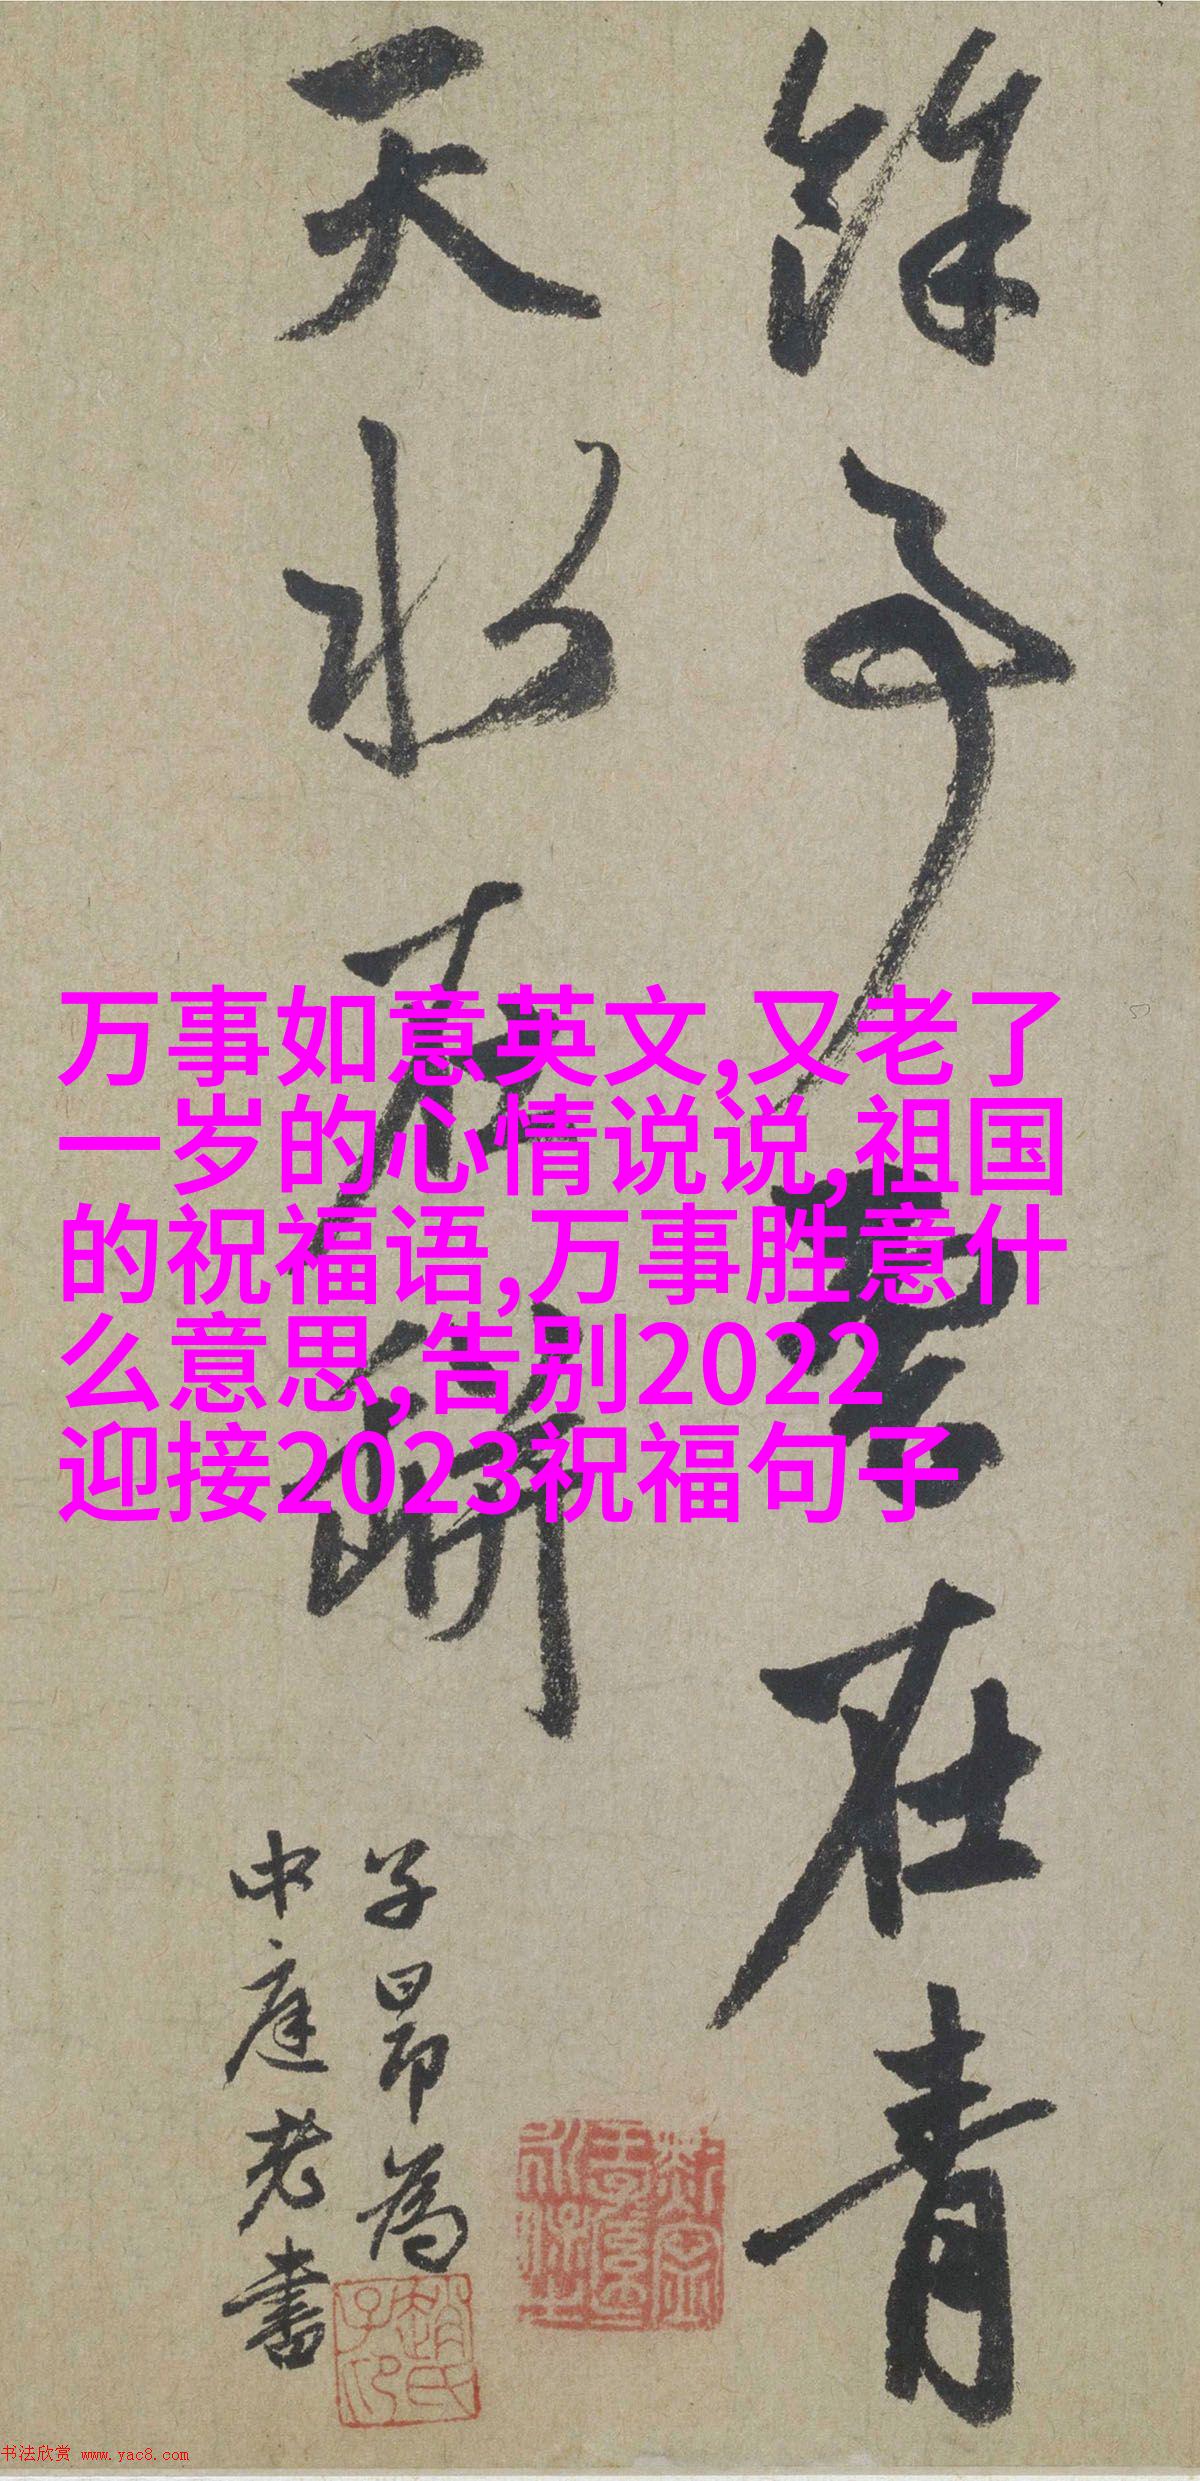 餘事雲在青
天水在瓶
子昂為
中庭老書
趙氏子印
万事如意英文,又老了
一岁的心情说说,祖国
的祝福语,万事胜意什
么意思,告别2022
迎接2023祝福句子
书法欣赏 www.yac8.com